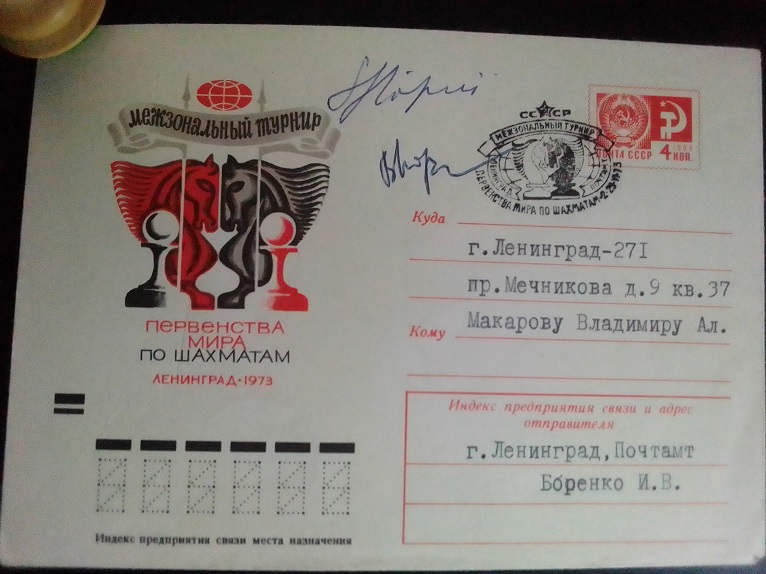 межзональный турнир
ПЕРВЕНСТВА
МИРА
ПО ШАХМАТАМ
ЛЕНИНГРАД·1973
СССР
МЕЖЗОНАЛЬНЫЙ ТУРНИР
ЛЕНИНГРАД
ПОЧТАМТ
ПЕРВЕНСТВА МИРА ПО ШАХМАТАМ
ПОЧТА СССР
4 КОП.
Куда
г.Ленинград-27I
пр.Мечникова д.9 кв.37
Кому
Макарову Владимиру Ал.
Индекс предприятия связи и адрес
отправителя
г.Ленинград,Почтамт
Боренко И.В.
Индекс предприятия связи места назначения